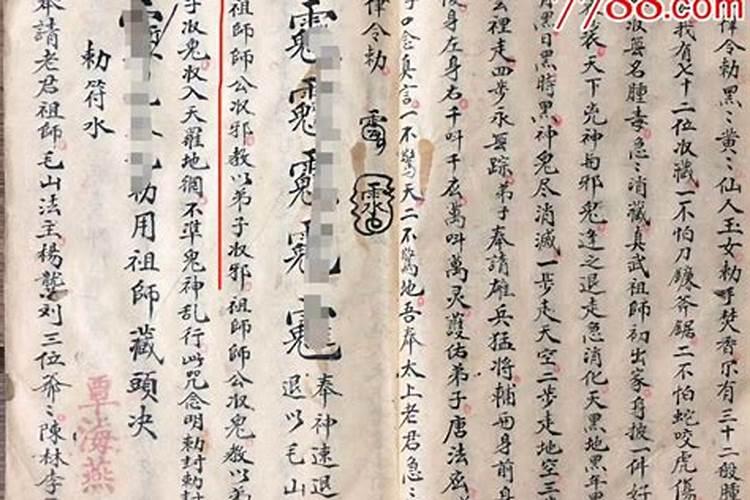 7788.com
律令勅黑〻黃〻仙人玉女勅手焚香尔有三十二般腫
我有七十二位收藏一不怕刀鐮斧鋸二不怕蛇咬虎傷
收無名腫毒急〻消藏真武祖師初出家身披一件好
衣天下兇神与邪鬼逢之退走急消化天黑地黑年
黑日黑時黑神鬼尽消滅一步走天空二步走地空三步
裡走四步永無踪弟子奉請雄兵猛将輔吾身前身
後身左身右千叫千应萬叫萬灵護佑弟子唐法
口念真言一不驚天二不驚地吾奉太上老君急〻
律令勅
奉神速退
退以毛山
祖師師公收邪教以弟子收邪祖師師公收鬼教以弟
子收鬼收入天羅地網不準鬼神乱行此咒念明勅封勅封
勅用祖師藏頭决
勅符水
奉請老君祖師毛山法主楊龔刘三位爺〻陳林李
覃海燕